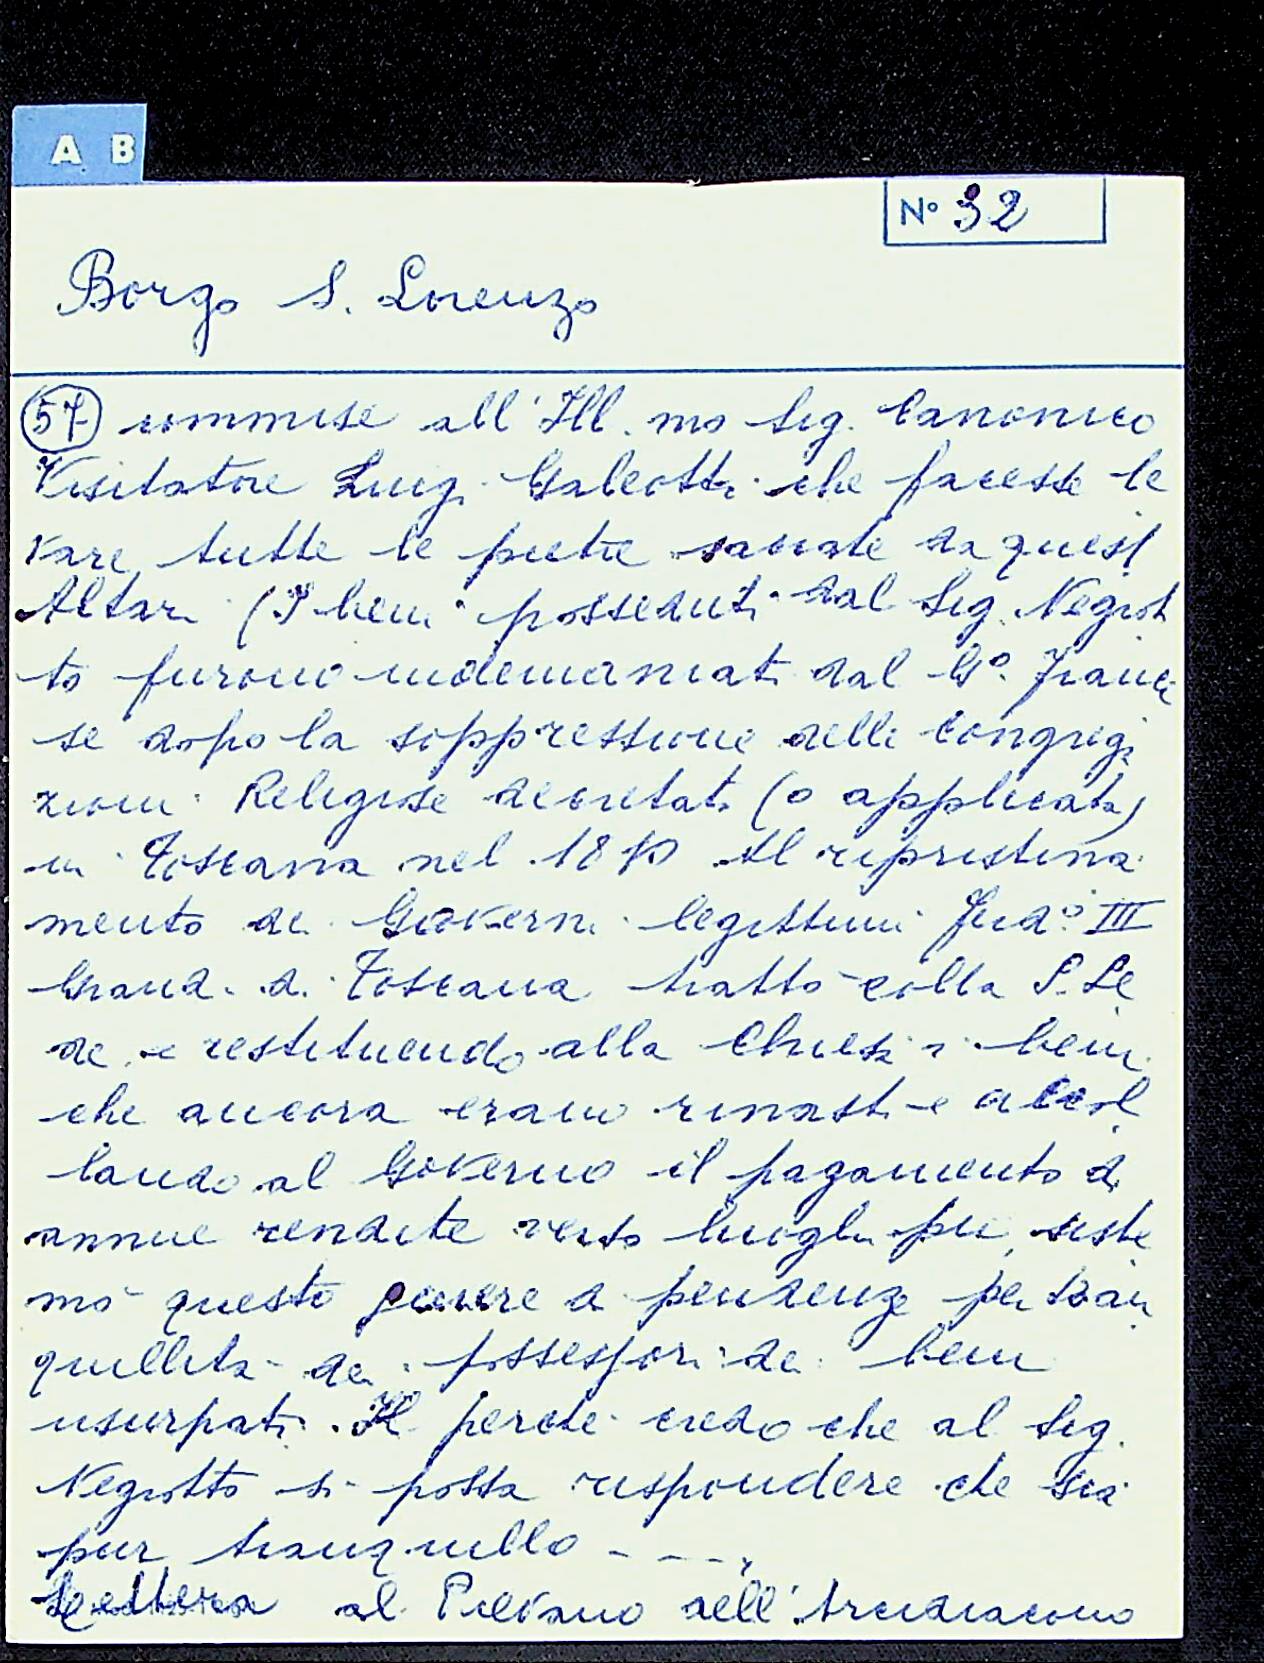 A B
N° 32
Borgo S. Lorenzo
57 commise all'Ill.mo Sig. Canonico
Visitatore Luigi Galeotti che facesse le
vare tutte le pietre sacrate da quest
Altari (I beni posseduti dal Sig. Negrot
to furono indemaniati dal G.º France
se dopo la soppressione delle congrega
zioni Religiose decretati (o applicata)
in Toscana nel 1810 Al ripristina
mento dei Governi legittimi Ferd.º III
Grand. di Toscana trattò colla S. Se
de e restituendo alla Chiesa i beni
che ancora erano rimasti e accol
lando al Governo il pagamento di
annue rendite verso luoghi pii, siste
mò questo genere di pendenze per tran
quillità dei possessori dei beni
usurpati. Il perché credo che al Sig.
Negrotto si possa rispondere che sia
pur tranquillo - - - -
Lettera al Pievano dell'Arcidiacono